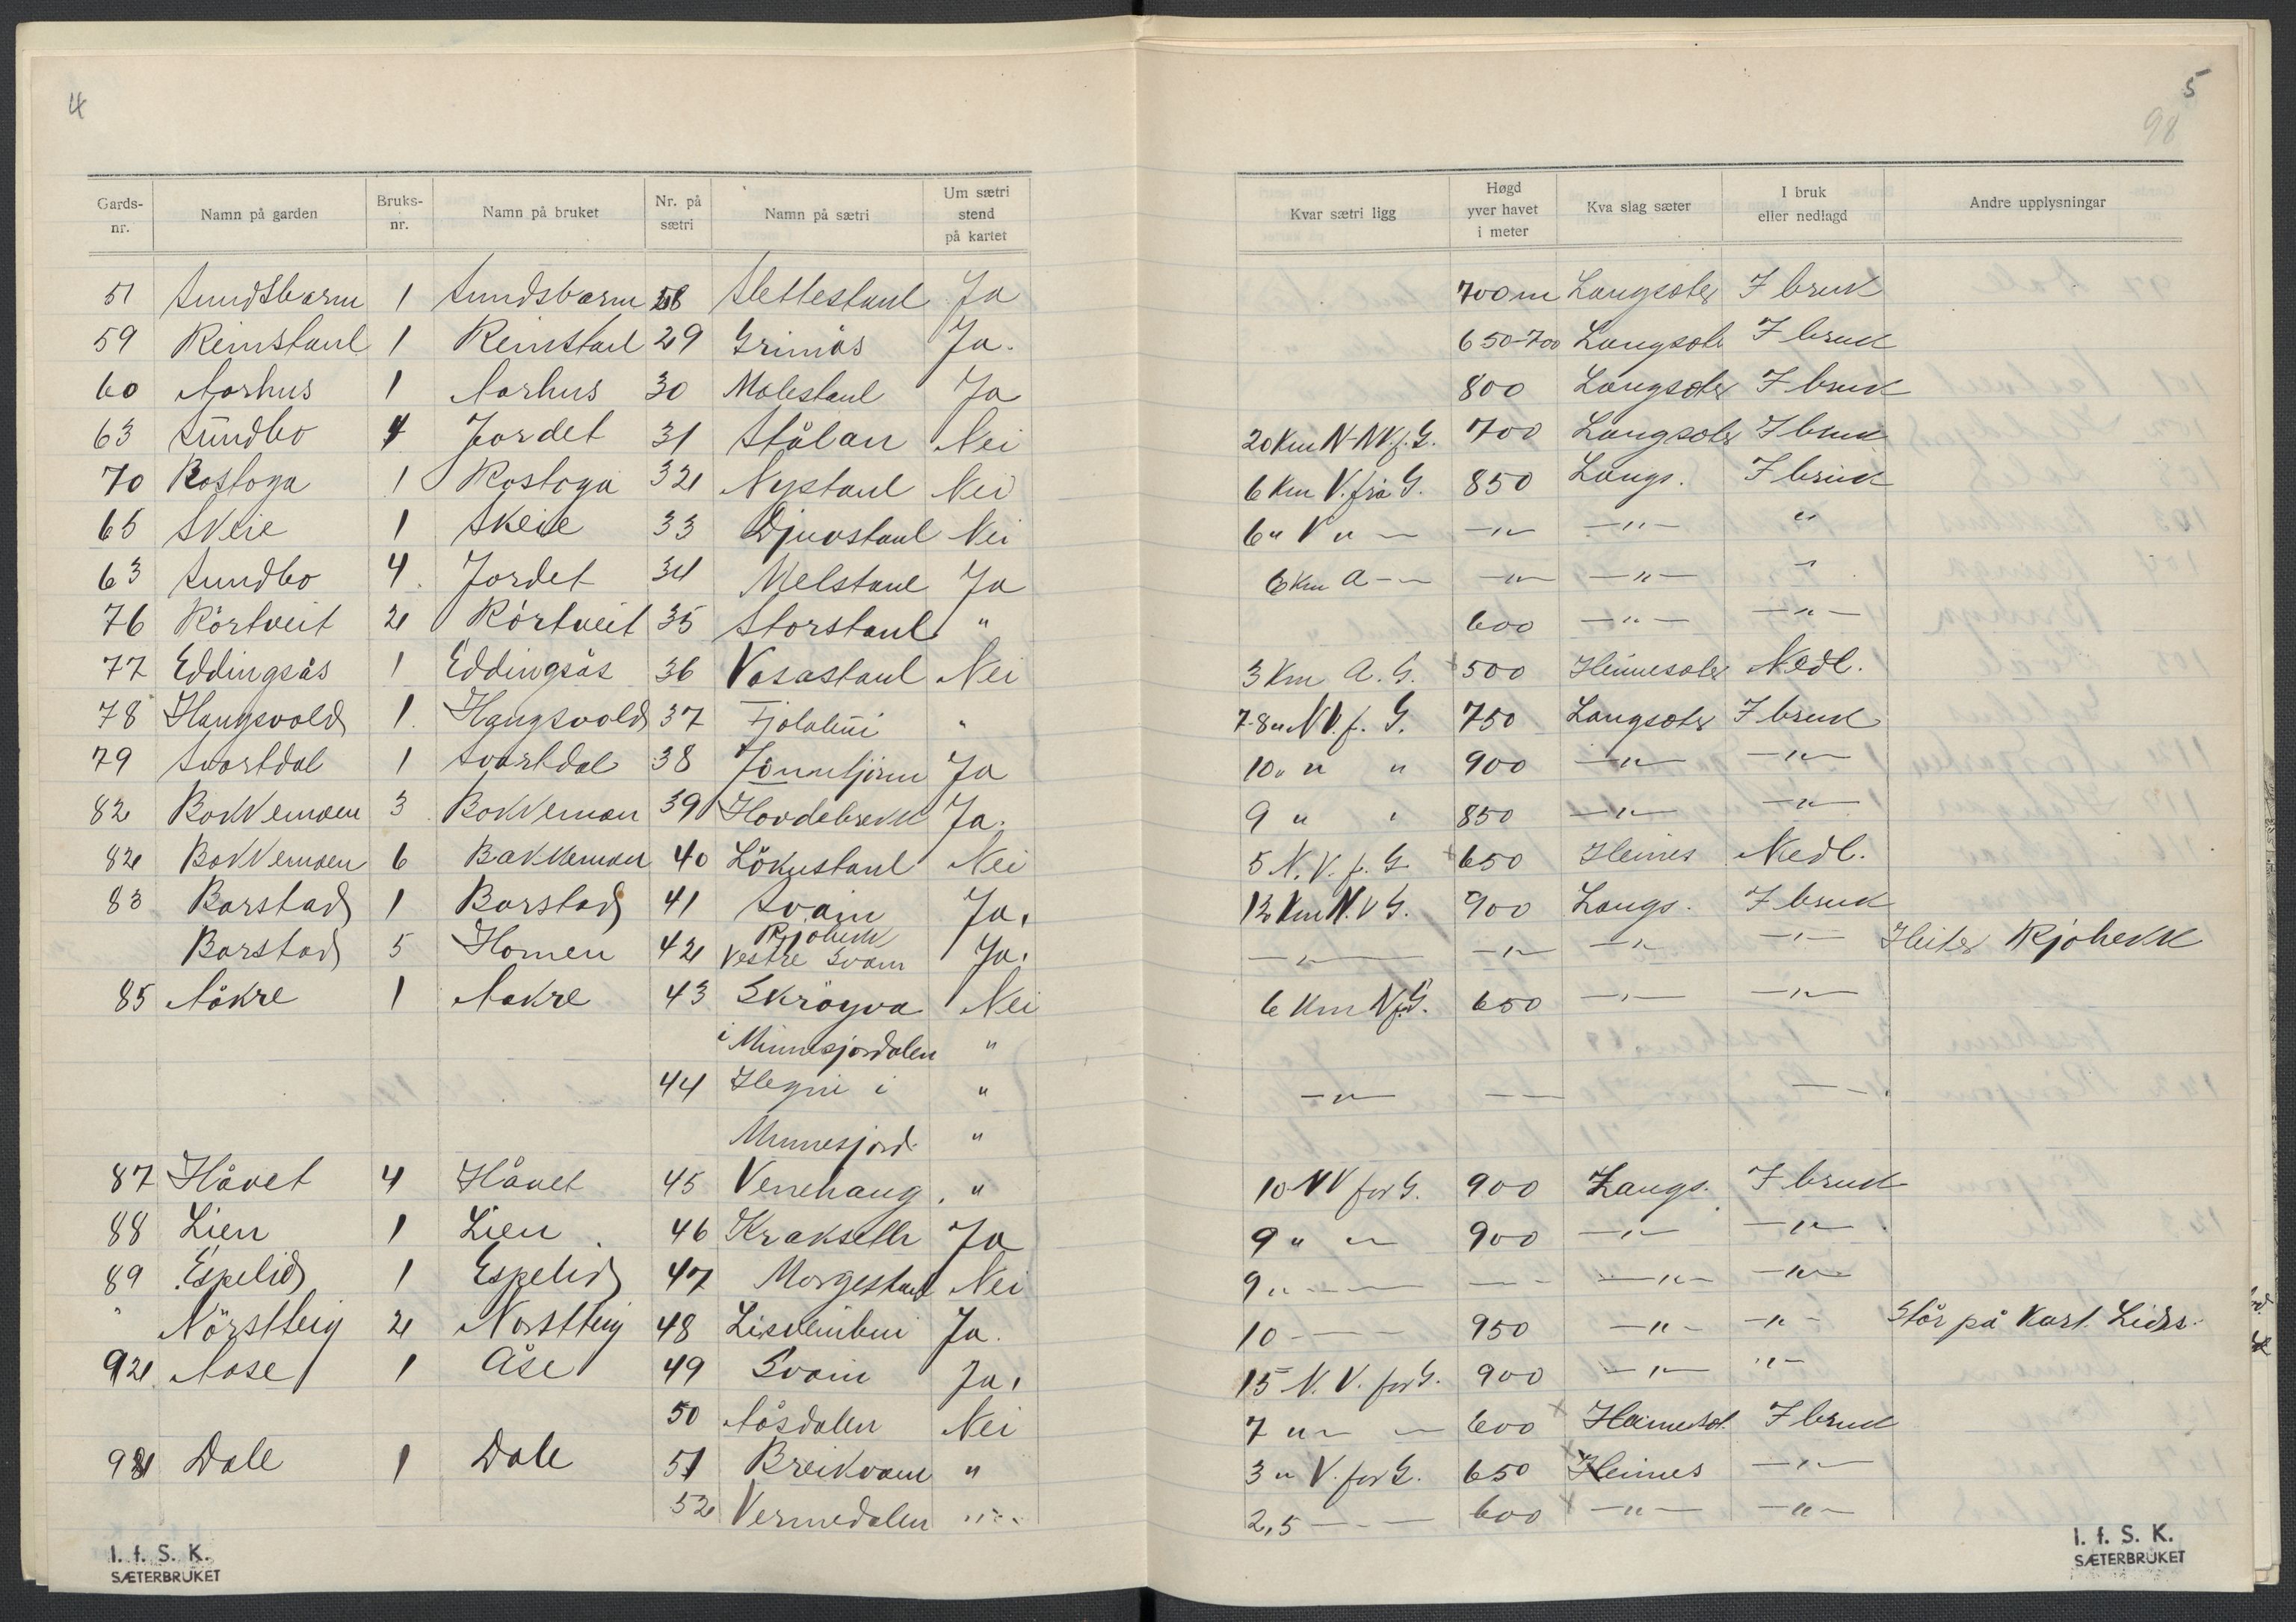 4
Gards-nr. Namn på garden Bruks-nr. Namn på bruket Nr. på sætri Namn på sætri Um sætri stend på kartet
51 Sundsbarm 1 Sundsbarm 28 Slettestaul Ja
59 Reinstaul 1 Reinstaul 29 Grimås Ja.
60 Aarhus 1 Aarhus 30 Molestaul Ja
63 Sundbo 4 Jordet 31 Stålan Nei
70 Rostoga 1 Rostoga 32 Nystaul Nei
65 Skeie 1 Skeie 33 Djuvstaul Nei
63 Sundbo 4 Jordet 34 Melstaul Ja
76 Rörtveit 2 Rörtveit 35 Storstaul "
77 Eddingsås 1 Eddingsås 36 Vasastaul Nei
78 Haugsvold 1 Haugsvold 37 "
79 Svartdal 1 Svartdal 38 Jönntjönn Ja
82 Bakkemoen 3 Bakkemoen 39 Hovdebrekk Ja.
82 Bakkemoen 6 Bakkemoen 40 Lökustaul Nei
83 Barstad 1 Barstad 41 Svain Ja.
Barstad 5 Homen 42 Rjobekk Vestre Svain Ja.
85 Aakre 1 Aakre 43 Skröyva Nei
i Minnesjordalen "
44 Hegni i "
Minnesjord. "
87 Håvet 4 Håvet 45 Venehaug "
88 Lien 1 Lien 46 Ja
89 Espelid 1 Espelid 47 Morgestaul Nei
" Nörstteig 2 Norstteig 48 Ja.
92 Aase 1 Åse 49 Svain Ja.
50 Aåsdalen Nei
92 Dale 1 Dale 51 Breikvam "
52 Vermedalen "
I. f. S. K.
SÆTERBRUKET
5
98
Kvar sætri ligg Høgd yver havet i meter Kva slag sæter I bruk eller nedlagd Andre upplysningar
700 m Langsæter I bruk
650-700 Langsæt I bruk
800 Langsæter I bruk
20 Km N-NV.f.G. 700 Langsæter I bruk
6 Km V. frå G. 850 Langs. I bruk
6 " V " — — " — — " — "
6 Km A — — " — — " — "
600 — " — — " —
3 Km A. G. x 500 Heimesæter Nedl.
7-8 " NV. f. G. 750 Langsæter I bruk
10 " " " 900 — " — — " —
9 " " 850 — " — — " —
5 N. V. f. G x 650 Heimes Nedl.
12 Km N. V G. 900 Langs. I bruk
— " — — " — — " — — " — Heiter Rjobekk
6 Km N f. G. 650 — " — — " —
— " — — — — " —
10 NV for G. 900 Langs. I bruk
9 " — 900 — " — — " —
9 " — — — — — " — — " —
10 — — — 950 — " — — " — Står på Kart. Lids.
15 N. V. for G. 900 — " — " —
7 " — — 600 x Heimesæt. I bruk
3 " V. for G. 650 x Heimes — " —
2,5 — — 600 x — " — — " —
I. f. S. K.
SÆTERBRUKET